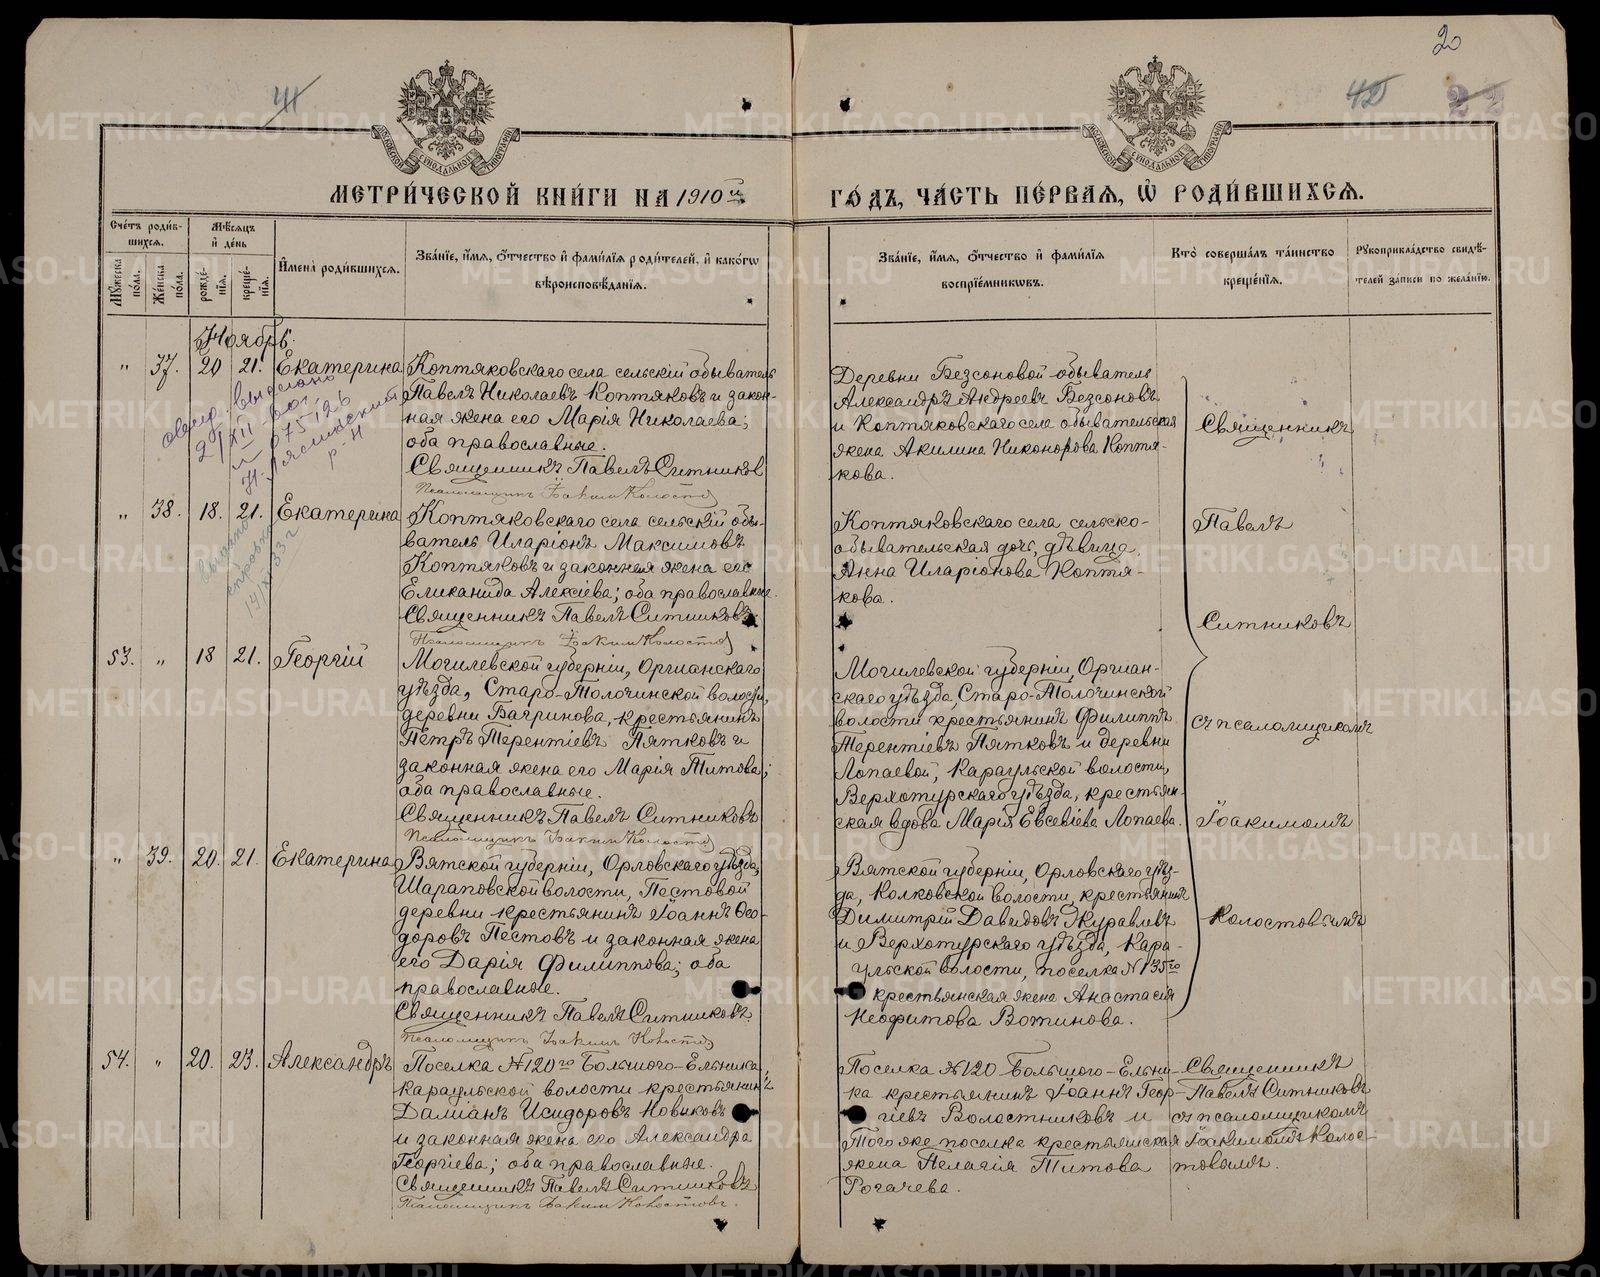 20
41
42
22
МОСКОВСКОЙ СѴНОДАЛЬНОЙ ТИПОГРАФІИ
МОСКОВСКОЙ СѴНОДАЛЬНОЙ ТИПОГРАФІИ
МЕТРИ́ЧЕСКОЙ КНИ́ГИ НА 1910й
ГО́ДЪ, ЧА́СТЬ ПЕ́РВАЯ, Ѽ РОДИ́ВШИХСЯ.
Сче́тъ роди́вшихся.
Му́жеска по́ла.
Же́нска по́ла.
Мѣ́сяцъ и҆ де́нь
рожде́нїя.
креще́нїя.
И҆мена̀ роди́вшихся.
Зва́нїе, и҆́мя, ѻ҆́тчество и҆ фами́лїя роди́телей, и҆ како́гѡ
вѣроисповѣ́данїя.
Зва́нїе, и҆́мя, ѻ҆́тчество и҆ фами́лїя
воспрїе́мникѡвъ.
Кто̀ соверша́лъ та́инство
креще́нїя.
Рꙋкоприкла́дство свидѣ́-
телей за́писи по жела́нїю.
Ноябрь.
" 37. 20 21. Екатерина
Коптяковскаго села сельскій обыватель
Павелъ Николаевъ Коптяковъ и закон-
ная жена его Марія Николаева;
оба православные.
Священникъ Павелъ Ситников
Псаломщикъ Іоакимъ Колостов
Деревни Безсоновой обыватель
Александръ Андреевъ Безсоновъ
и Коптяковскаго села обывательская
жена Акилина Никонорова Коптя-
кова.
выслано
2/XII
075126
" 38. 18. 21. Екатерина
Коптяковскаго села сельскій обы-
ватель Иларіонъ Максимовъ
Коптяковъ и законная жена его
Еликанида Алексіева; оба православные.
Священникъ Павелъ Ситниковъ
Псаломщикъ Іоакимъ Колостов
Коптяковскаго села сельско-
обывательская дочь, дѣвица,
Анна Иларіонова Коптя-
кова.
53. " 18 21. Георгій
Могилевской губерніи, Оршанскаго
уѣзда, Старо-Толочинской волости,
деревни Багринова, крестьянинъ
Петръ Терентіевъ Пятковъ и
законная жена его Марія Титова;
оба православные.
Священникъ Павелъ Ситниковъ
Псаломщикъ Іоакимъ Колостов
Могилевской губерніи, Оршан-
скаго уѣзда, Старо-Толочинской
волости крестьянинъ Филиппъ
Терентіевъ Пятковъ и деревни
Лопаевой, Караульской волости,
Верхотурскаго уѣзда, крестьян-
ская вдова Марія Евсевіева Лопаева.
" 39. 20. 21. Екатерина
Вятской губерніи, Орловскаго уѣзда,
Шараповской волости, Пестовой
деревни крестьянинъ Іоаннъ Ѳео-
доровъ Пестовъ и законная жена
его Дарія Филиппова; оба
православные.
Священникъ Павелъ Ситниковъ.
Псаломщикъ Іоакимъ Колостов
Вятской губерніи, Орловскаго уѣз-
да, Колковской волости, крестьянинъ
Димитрій Давидовъ Журавлевъ
и Верхотурскаго уѣзда, Кара-
ульской волости, поселка №135го
крестьянская жена Анастасія
Неофитова Вотинова.
Священникъ
Павелъ
Ситниковъ
съ псаломщикомъ
Іоакимомъ
Колостовымъ
54. " 20. 23. Александръ
Поселка №120го Большого-Ельника,
караульской волости крестьянинъ
Даміанъ Исидоровъ Новиковъ
и законная жена его Александра
Георгіева; оба православные.
Священникъ Павелъ Ситниковъ
Псаломщикъ Іоакимъ Колостовъ.
Поселка №120 Большого-Ельни-
ка крестьянинъ Іоаннъ Геор-
гіевъ Волостниковъ и
Того же поселка крестьянская
жена Пелагія Титова
Рогачева.
Священникъ
Павелъ Ситниковъ
съ псаломщикомъ
Іоакимомъ Колос-
товымъ.